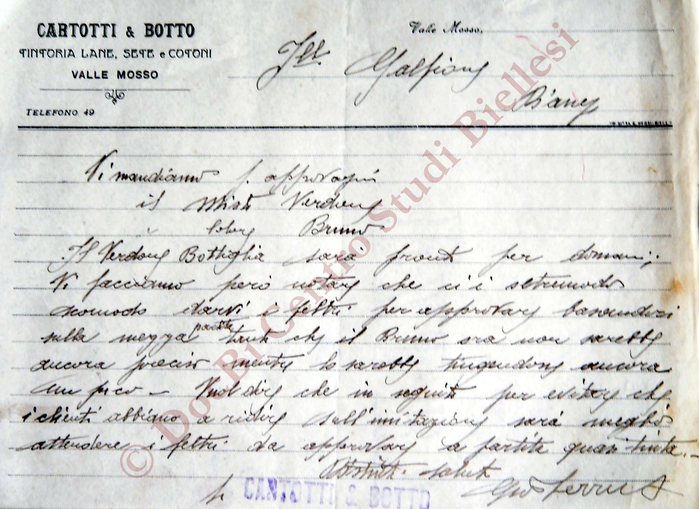 CARTOTTI & BOTTO
TINTORIA LANE, SETE e COTONI
VALLE MOSSO
TELEFONO 49
Valle Mosso,
Vi mandiamo p. approvazioni
il Misto Verdone
Bruno
Il Verdone Bottiglia sarà pronto per domani;
Vi facciamo però notare che ci è oltremodo
scomodo darvi i feltri per approvare basandoci
sulla mezza partita tanto che il Bruno ora non sarebbe
ancora preciso mentre lo sarebbe tingendone ancora
un poco — Vuol dire che in seguito per evitare che
i clienti abbiano a ridire sull'imitazione sarà meglio
attendere i feltri da approvare a partita quasi tinta.—
saluti
CANTOTTI & BOTTO
© DocBi Centro Studi Biellesi